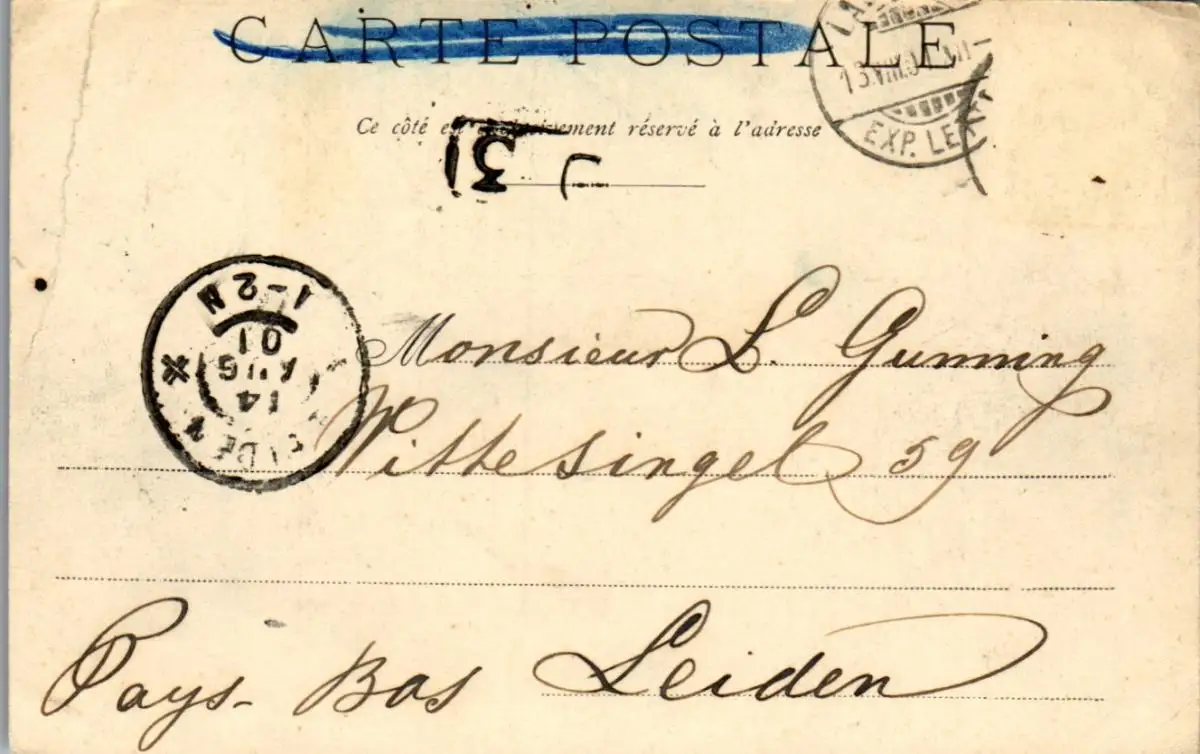 CARTE POSTALE
13.VIII.01
EXP. LE
Ce côté est exclusivement réservé à l'adresse
31
1-2N
01
AUG
14
Monsieur L. Gunning
Wittesingel 59
Pays-Bas Leiden